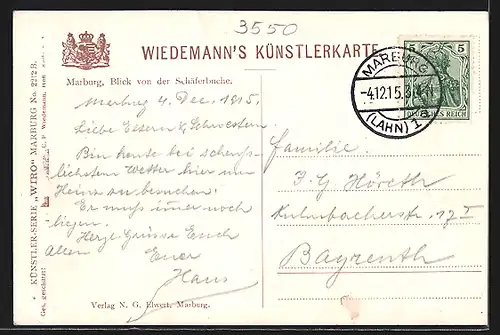 3550
WIEDEMANN'S KÜNSTLERKARTE
Marburg, Blick von der Schäferbuche.
Marburg 4. Dec. 1915.
Liebe Eltern & Schwestern.
Bin heute bei scheuß-
lichstem Wetter hier um
Heinz zu besuchen.
Er muß immer noch
liegen.
Herzl. Grüsse Euch
Allen Euer
Hans
Verlag N. G. Elwert, Marburg.
KÜNSTLER-SERIE „WIRO" MARBURG No. 2212 B.
Ges. geschützt!
5 5
DEUTSCHES REICH
MARBURG
-4.12.15.
(LAHN) 1
Familie
J. G. Höreth
Kulmbacherstr. 17 I
Bayreuth